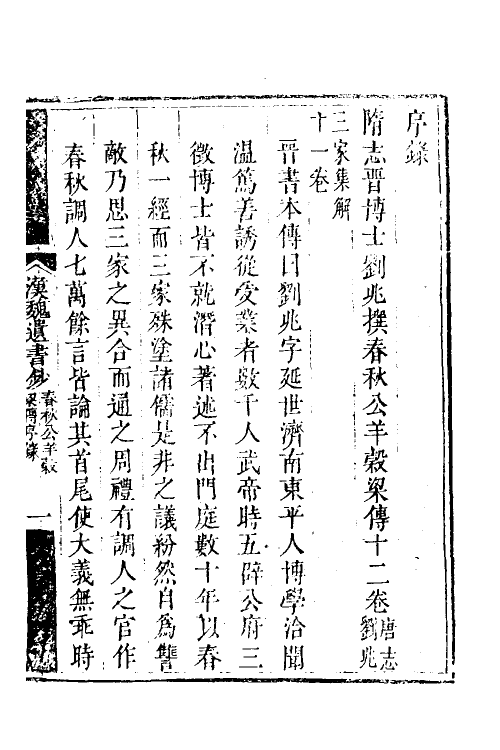 序錄
隋志晉博士劉兆撰春秋公羊榖梁傳十二卷唐志劉兆
三家集解
十一卷
晉書本傳曰劉兆字延世濟南東平人博學洽聞
溫篤善誘從受業者數千人武帝時五辟公府三
徵博士皆不就潛心著述不出門庭數十年以春
秋一經而三家殊塗諸儒是非之議紛然自爲讐
敵乃思三家之異合而通之周禮有調人之官作
春秋調人七萬餘言皆論其首尾使大義無乖時
漢魏遺書鈔
春秋公羊榖
梁傳序錄
一